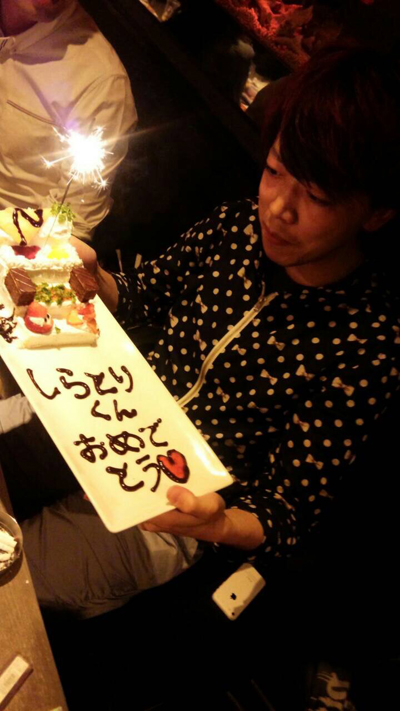 しらとり
くん
おめで
とう